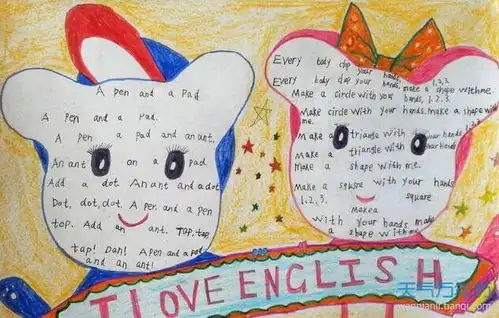 A pen and a pad
A pen and a pad.
A pen a pad and an ant.
An ant on a pad.
Add a dot. An ant and a dot
Dot, dot, dot. A pen. and a pen
top. Add an ant. Tap, tap
tap! Dan! A pen and a pad
and an ant!
Every body clap your hands,
Every body clap your hands, 1,2,3.
Make a circle with your hands, make a shape with me.
1.2.3.
Make circle with your hands. make a shape with
me.
Make a triangle with your hands, 1.2.3
Make a thiangle with your hands.
Make a shape with me.
Make a square with your hands
1.2,3. square
Make a
with your hands, make
a shape with me.
I LOVE ENGLISH
wannianli.tianqi.com